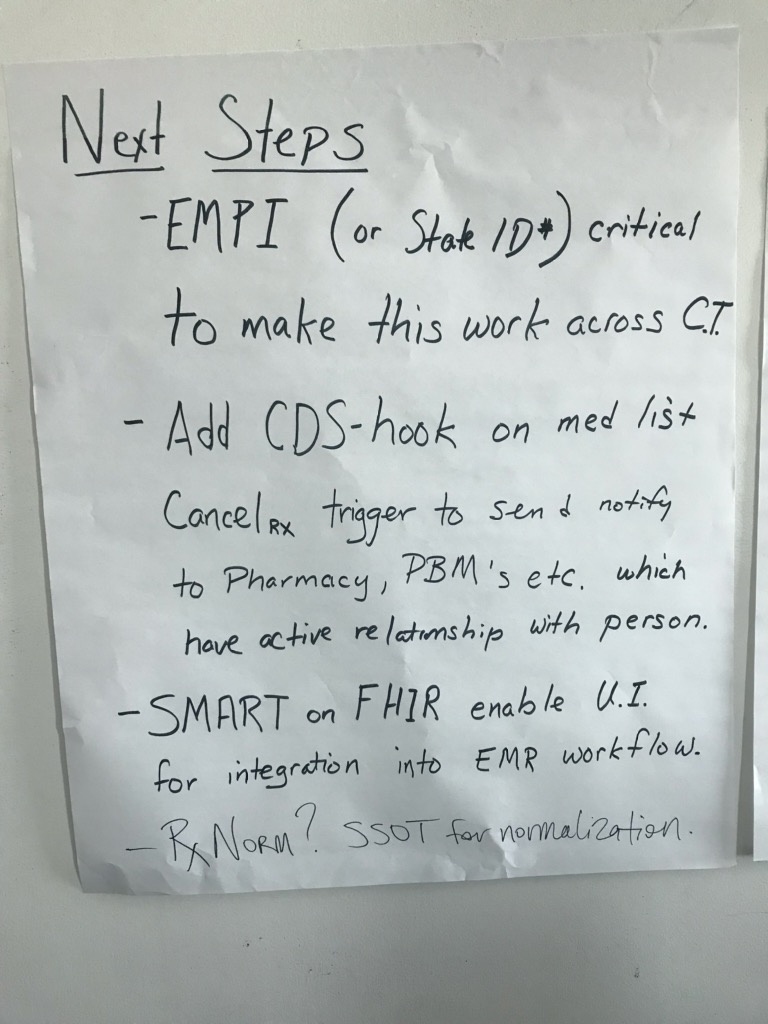 Next Steps
- EMPI (or State ID#) critical
to make this work across C.T.
- Add CDS-hook on med list
CancelRx trigger to send notify
to Pharmacy, PBM's etc. which
have active relationship with person.
- SMART on FHIR enable U.I.
for integration into EMR workflow.
- RxNorm? SSOT for normalization.